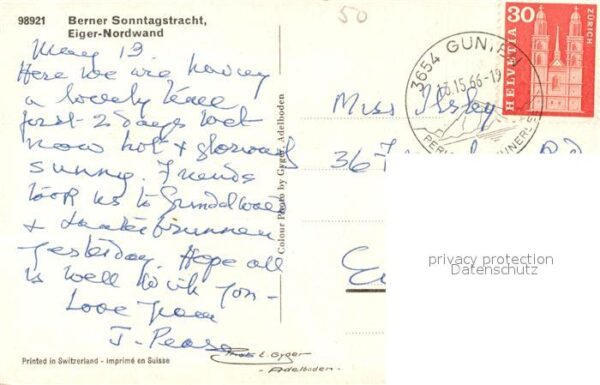 98921 Berner Sonntagstracht,
Eiger-Nordwand
50
May 13
Here we are having
a lovely time
first 2 days wet
now hot & glorious
sunny. Friends
took us to Grindelwald
& Lauterbrunnen
yesterday. Hope all
is well with you -
Love from
J. Pease
Printed in Switzerland - imprimé en Suisse
Colour Photo by Gyger, Adelboden
Photo E. Gyger
- Adelboden -
3654 GUN
15 66-19
HELVETIA 30 ZÜRICH
Miss
36
privacy protection
Datenschutz